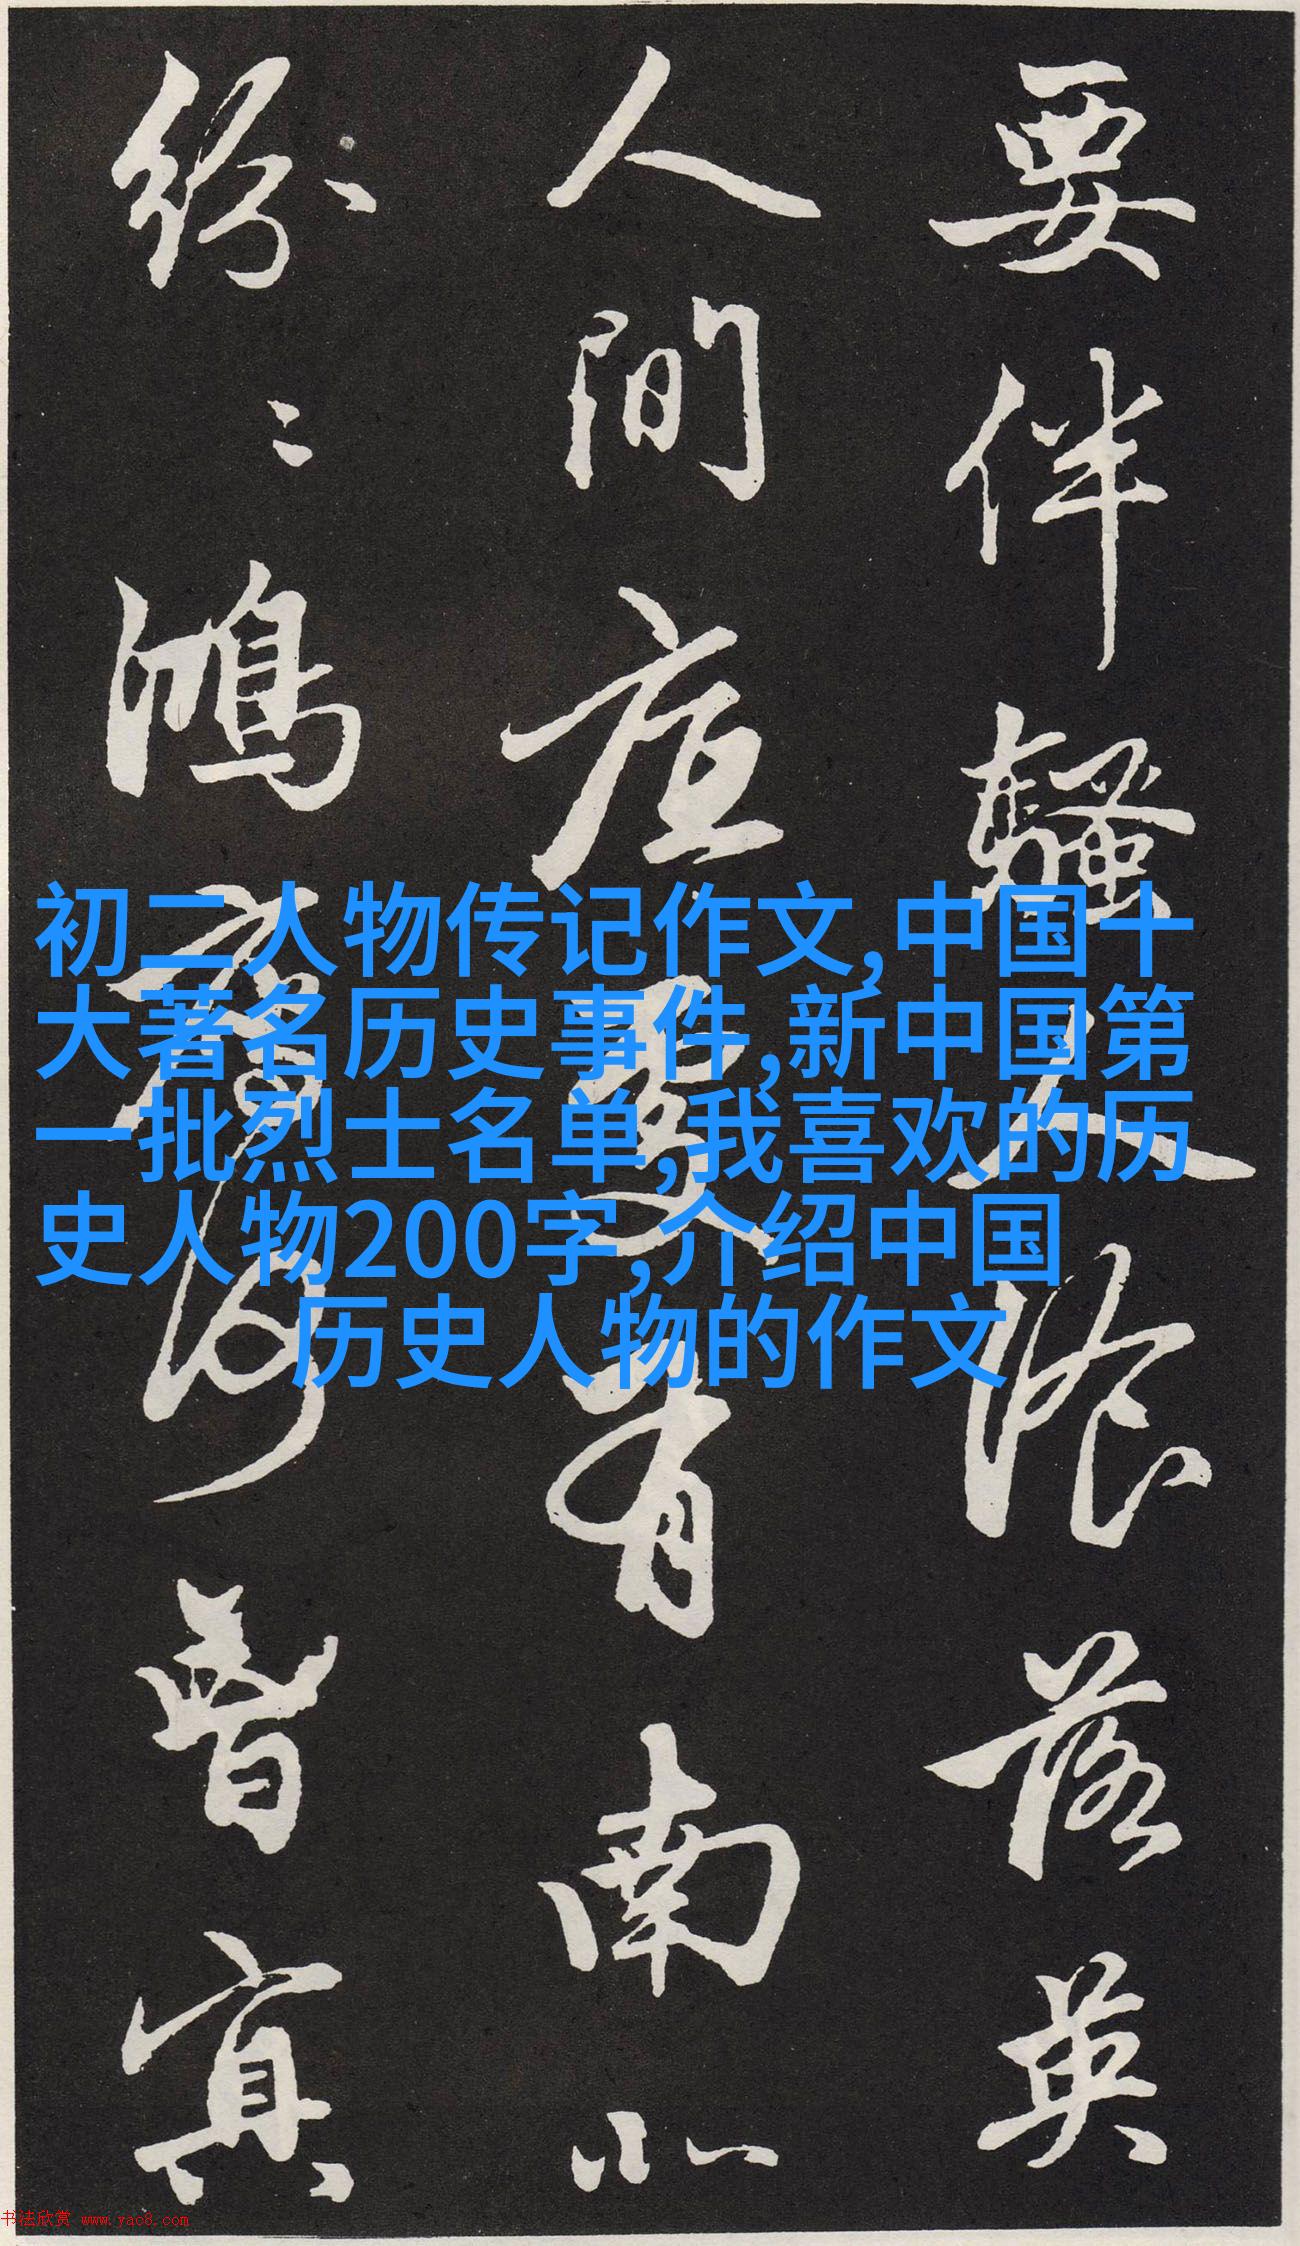 要伴騷人湌落英
人間底處有南北
紛〻鴻鴈何曾冥
初二人物传记作文,中国十
大著名历史事件,新中国第
一批烈士名单,我喜欢的历
史人物200字,介绍中国
历史人物的作文
书法欣赏 www.yac8.com